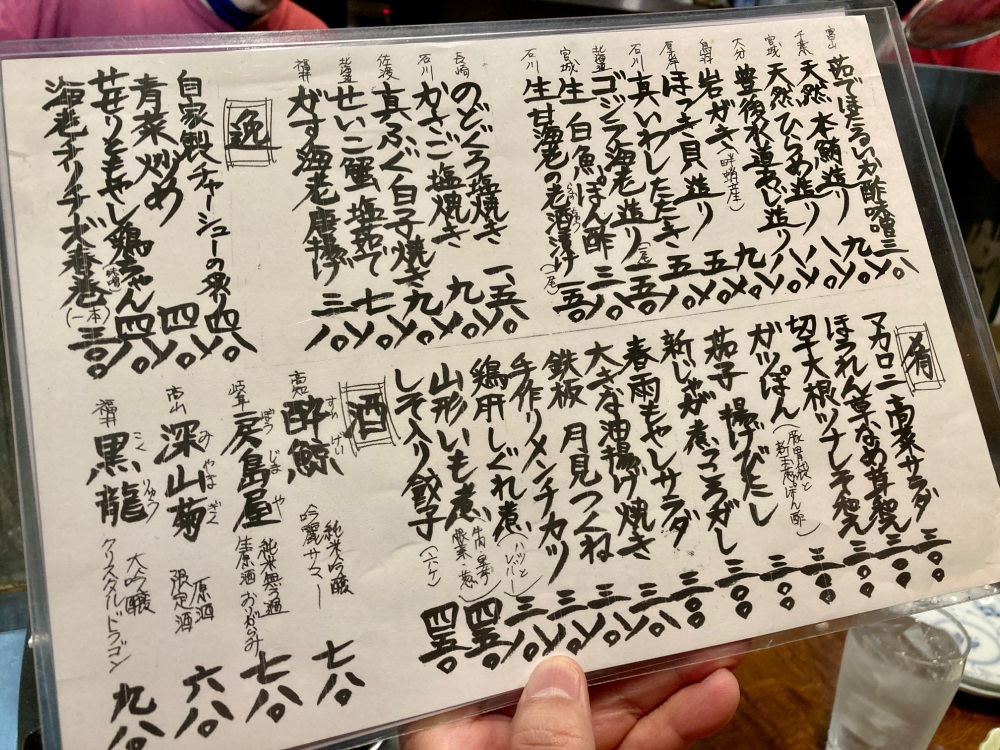 富山 茹でほたるいか酢味噌 三八〇
千葉 天然本鮪造り 九八〇
宮城 天然ひらめ造り 八八〇
大分 豊後水道あじ造り 八八〇
岩がき(畔蛸産) 九八〇
厚岸 ほっき貝造り 五八〇
石川 真いわしたたき 五八〇
北海道 ゴジラ海老造り(一尾) 五五〇
宮城 生白魚ぽん酢 三八〇
石川 生甘海老の老酒漬け(一尾) 一五〇
長崎 のどぐろ塩焼き 一、五八〇
石川 かさご塩焼き 九八〇
佐渡 真ふぐ白子焼き 九八〇
北海道 せいこ蟹塩茹で 七八〇
福井 がす海老唐揚げ 三八〇
逸
自家製チャーシューの炙り 四八〇
青菜炒め 四八〇
せせりともやし鶏ちゃん(味噌) 四八〇
海老チリチーズ春巻(一本) 三三〇
肴
マカロニ南菜サラダ 三三〇
ほうれん草なめ茸和え 三三〇
切干大根ツナしそ和え 三三〇
ガツぽん(豚胃袋と新玉葱ぽん酢) 三三〇
茄子揚げびたし 三三〇
新じゃが煮っころがし 三三〇
春雨もやしサラダ 三八〇
大きな油揚げ焼き 三八〇
鉄板月見つくね 三八〇
手作りメンチカツ 三八〇
鶏肝しぐれ煮(ハツとレバー) 三八〇
山形いも煮(牛肉・里芋・葱) 四五〇
しそ入り餃子(八ケ) 四五〇
酒
高知 酔鯨 すいげい 純米吟醸 吟麗サマー 七八〇
岐阜 房島屋 ぼうじまや 純米無ろ過 生原酒おりがらみ 七八〇
富山 深山菊 みやまぎく 原酒 限定酒 六八〇
福井 黒龍 こくりゅう 大吟醸 クリスタルドラゴン 九八〇